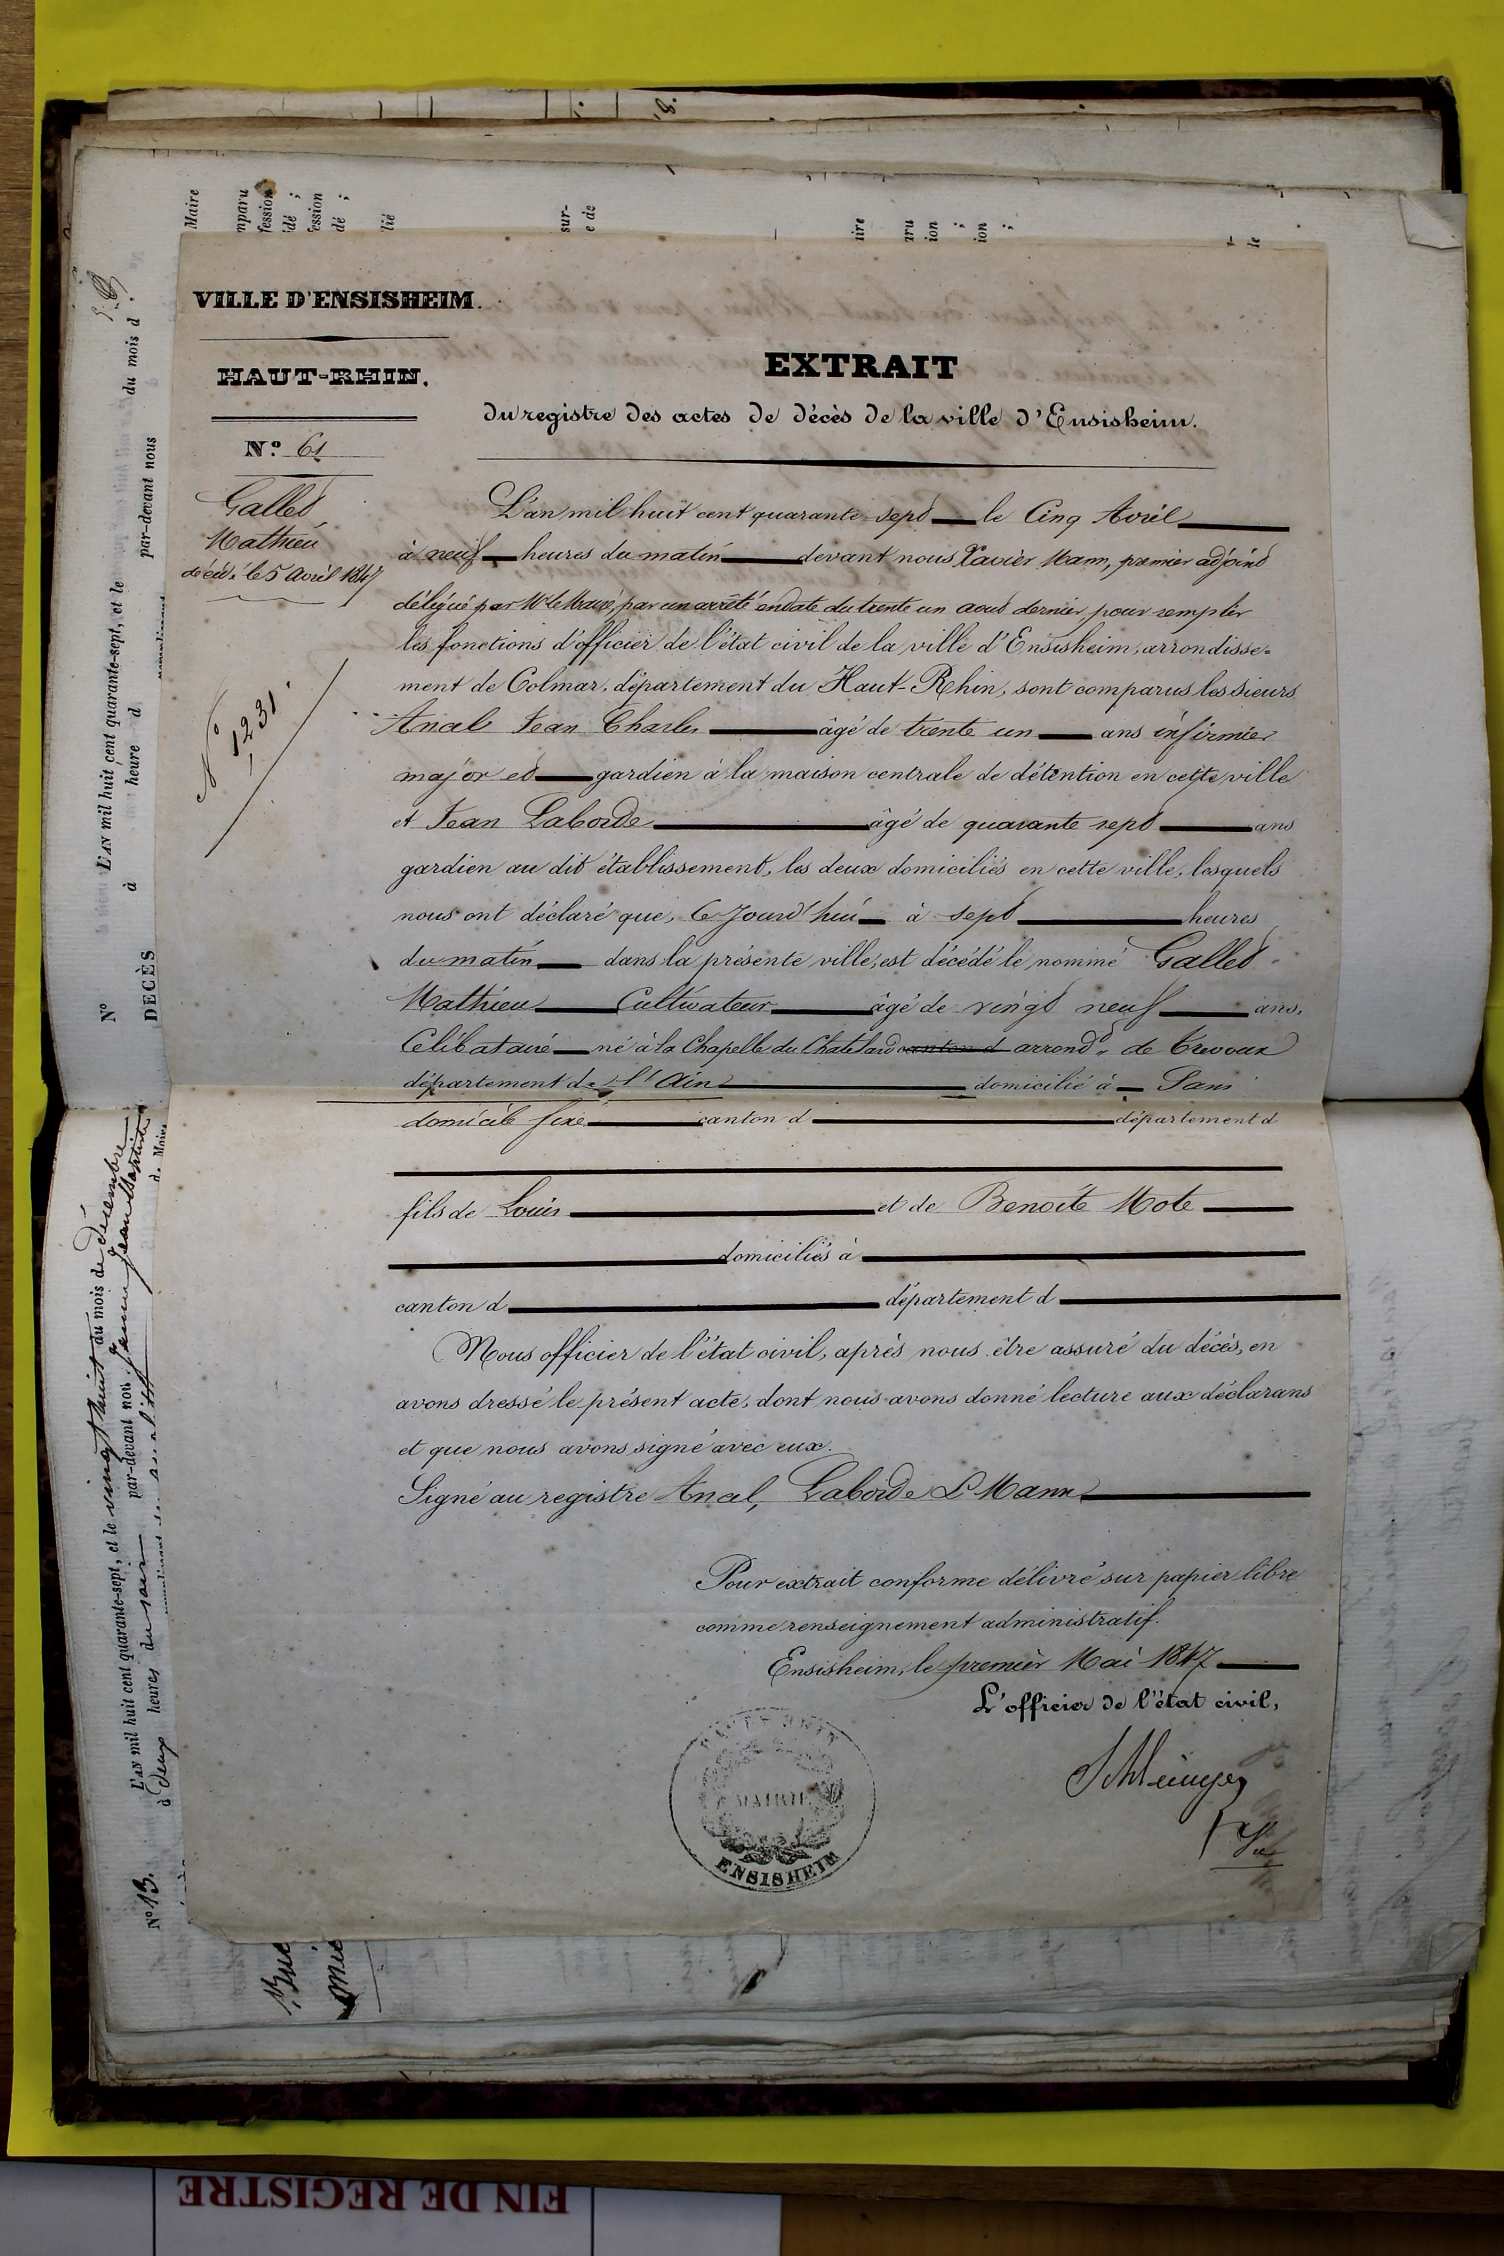 VILLE D'ENSISHEIM.
HAUT-RHIN.
N.° 61
Gallet
Mathieu
décédé le 5 Avril 1847
N° 1231.
EXTRAIT
du registre des actes de décès de la ville d'Ensisheim.
L'an mil huit cent quarante-sept le Cinq Avril
à neuf heures du matin devant nous Xavier Mann, premier adjoint
délégué par Mr le Maire, par un arrêté en date du trente un aout dernier pour remplir
les fonctions d'officier de l'état civil de la ville d'Ensisheim, arrondisse-
ment de Colmar, département du Haut-Rhin, sont comparus les sieurs
Ancel Jean Charles âgé de trente un ans infirmier
major et gardien à la maison centrale de détention en cette ville
et Jean Laborde âgé de quarante sept ans
gardien au dit établissement, les deux domiciliés en cette ville, lesquels
nous ont déclaré que, ce jourd'hui à sept heures
du matin dans la présente ville, est décédé le nommé Gallet
Mathieu Cultivateur âgé de vingt neuf ans,
Célibataire né à la Chapelle du Chatelard canton d arrondt. de Trevoux
département de l'Ain domicilié à Sans
domicile fixe canton d département d
fils de Louis et de Benoite Mote
domiciliés à
canton d département d
Nous officier de l'état civil, après nous être assuré du décès, en
avons dressé le présent acte, dont nous avons donné lecture aux déclarans
et que nous avons signé avec eux.
Signé au registre Ancel, Laborde & Mann
Pour extrait conforme délivré sur papier libre
comme renseignement administratif.
Ensisheim, le premier Mai 1847
L'officier de l'état civil,
HAUT-RHIN
MAIRIE
ENSISHEIM
N° L'AN mil huit cent quarante-sept, et le du mois d
DÉCÈS à heure d par-devant nous
N° 13. L'AN mil huit cent quarante-sept, et le vingt huit du mois de décembre
à deux heures du soir par-devant nou Jean Baptiste
FIN DE REGISTRE